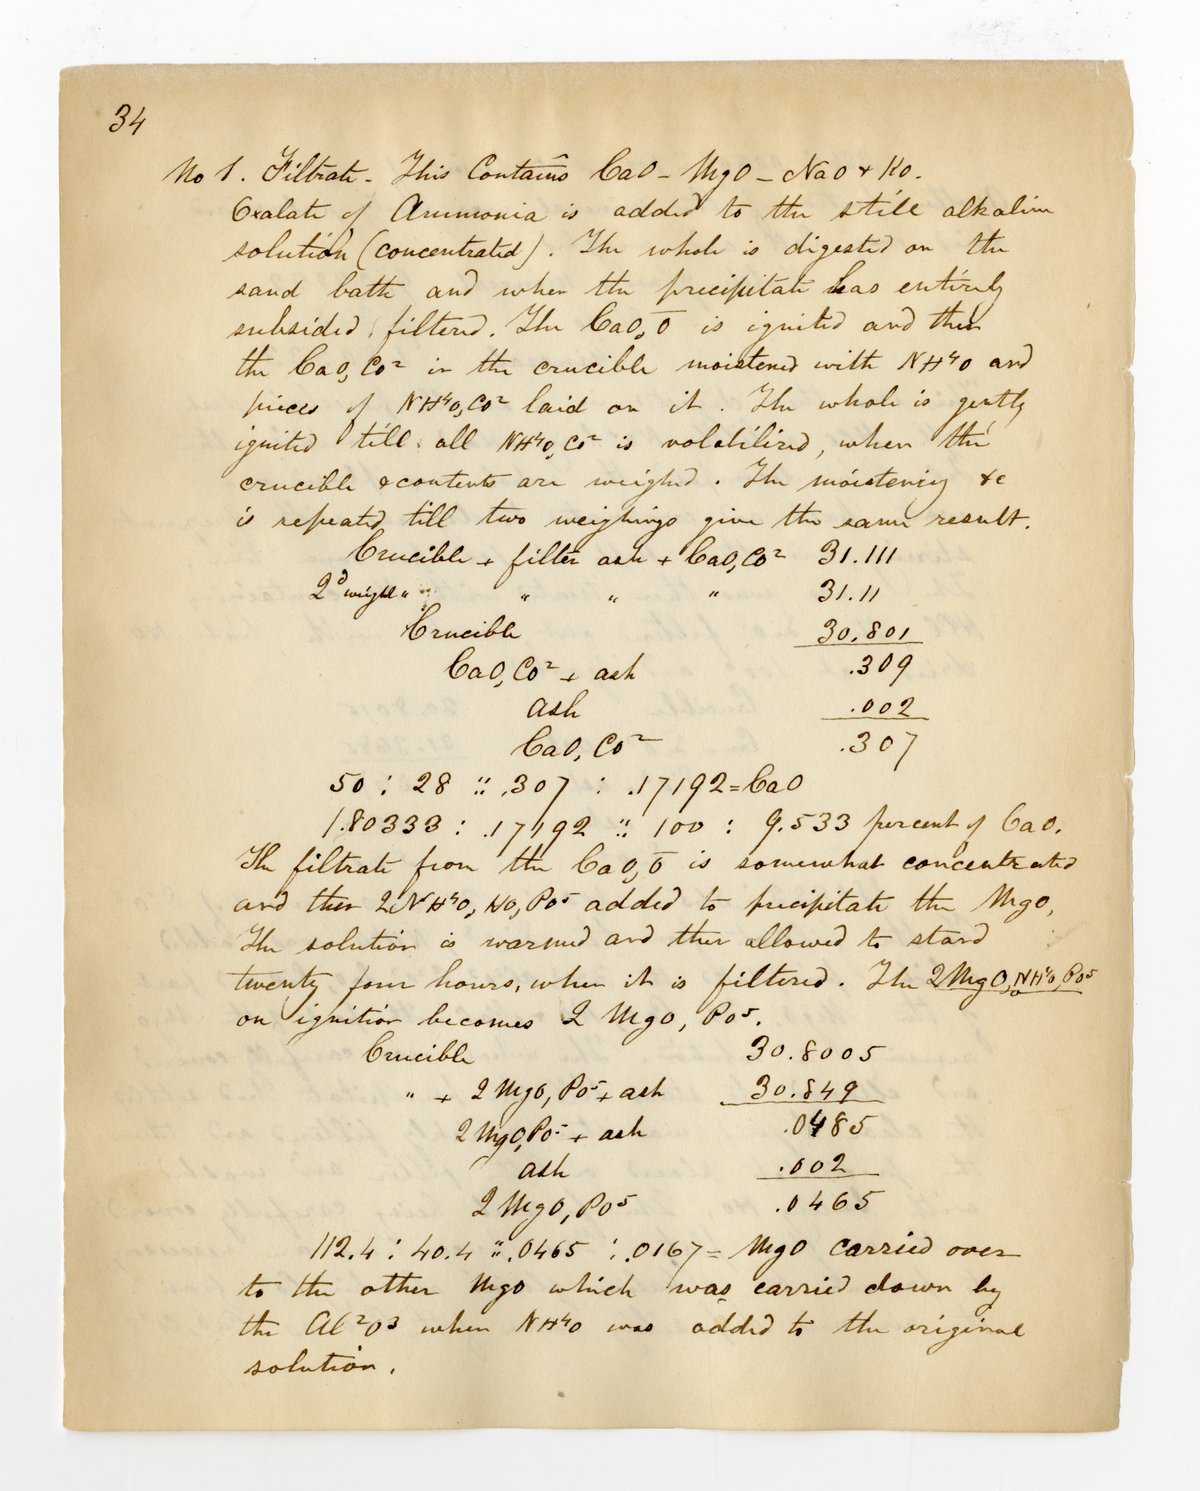 34
No 1. Filtrate - This Contains CaO - MgO - NaO + KO.
Oxalate of Ammonia is added to the still alkaline
solution (concentrated). The whole is digested on the
sand bath and when the precipitate has entirely
subsided, filtered. The CaO, O̅ is ignited and then
the CaO, CO² in the crucible moistened with NH⁴O and
pieces of NH⁴O, CO² laid on it. The whole is gently
ignited till all NH⁴O, CO² is volatilized, when the
crucible & contents are weighed. The moistening &c
is repeated till two weighings give the same result.
Crucible + filter ash + CaO, CO² 31.111
2ᵈ weigh " " " " 31.11
Crucible 30.801
CaO, CO² + ash .309
ash .002
CaO, CO² .307
50 : 28 :: .307 : .17192 = CaO
1.80333 : .17192 :: 100 : 9.533 percent of CaO.
The filtrate from the CaO, O̅ is somewhat concentrated
and then 2NH⁴O, HO, PO⁵ added to precipitate the MgO,
The solution is warmed and then allowed to stand
twenty four hours, when it is filtered. The 2MgO, NH⁴O, PO⁵
on ignition becomes 2 MgO, PO⁵.
Crucible 30.8005
" + 2 MgO, PO⁵ + ash 30.849
2 MgO, PO⁵ + ash .0485
ash .002
2 MgO, PO⁵ .0465
112.4 : 40.4 :: .0465 : .0167 = MgO carried over
to the other MgO which was carried down by
the Al²O³ when NH⁴O was added to the original
solution.